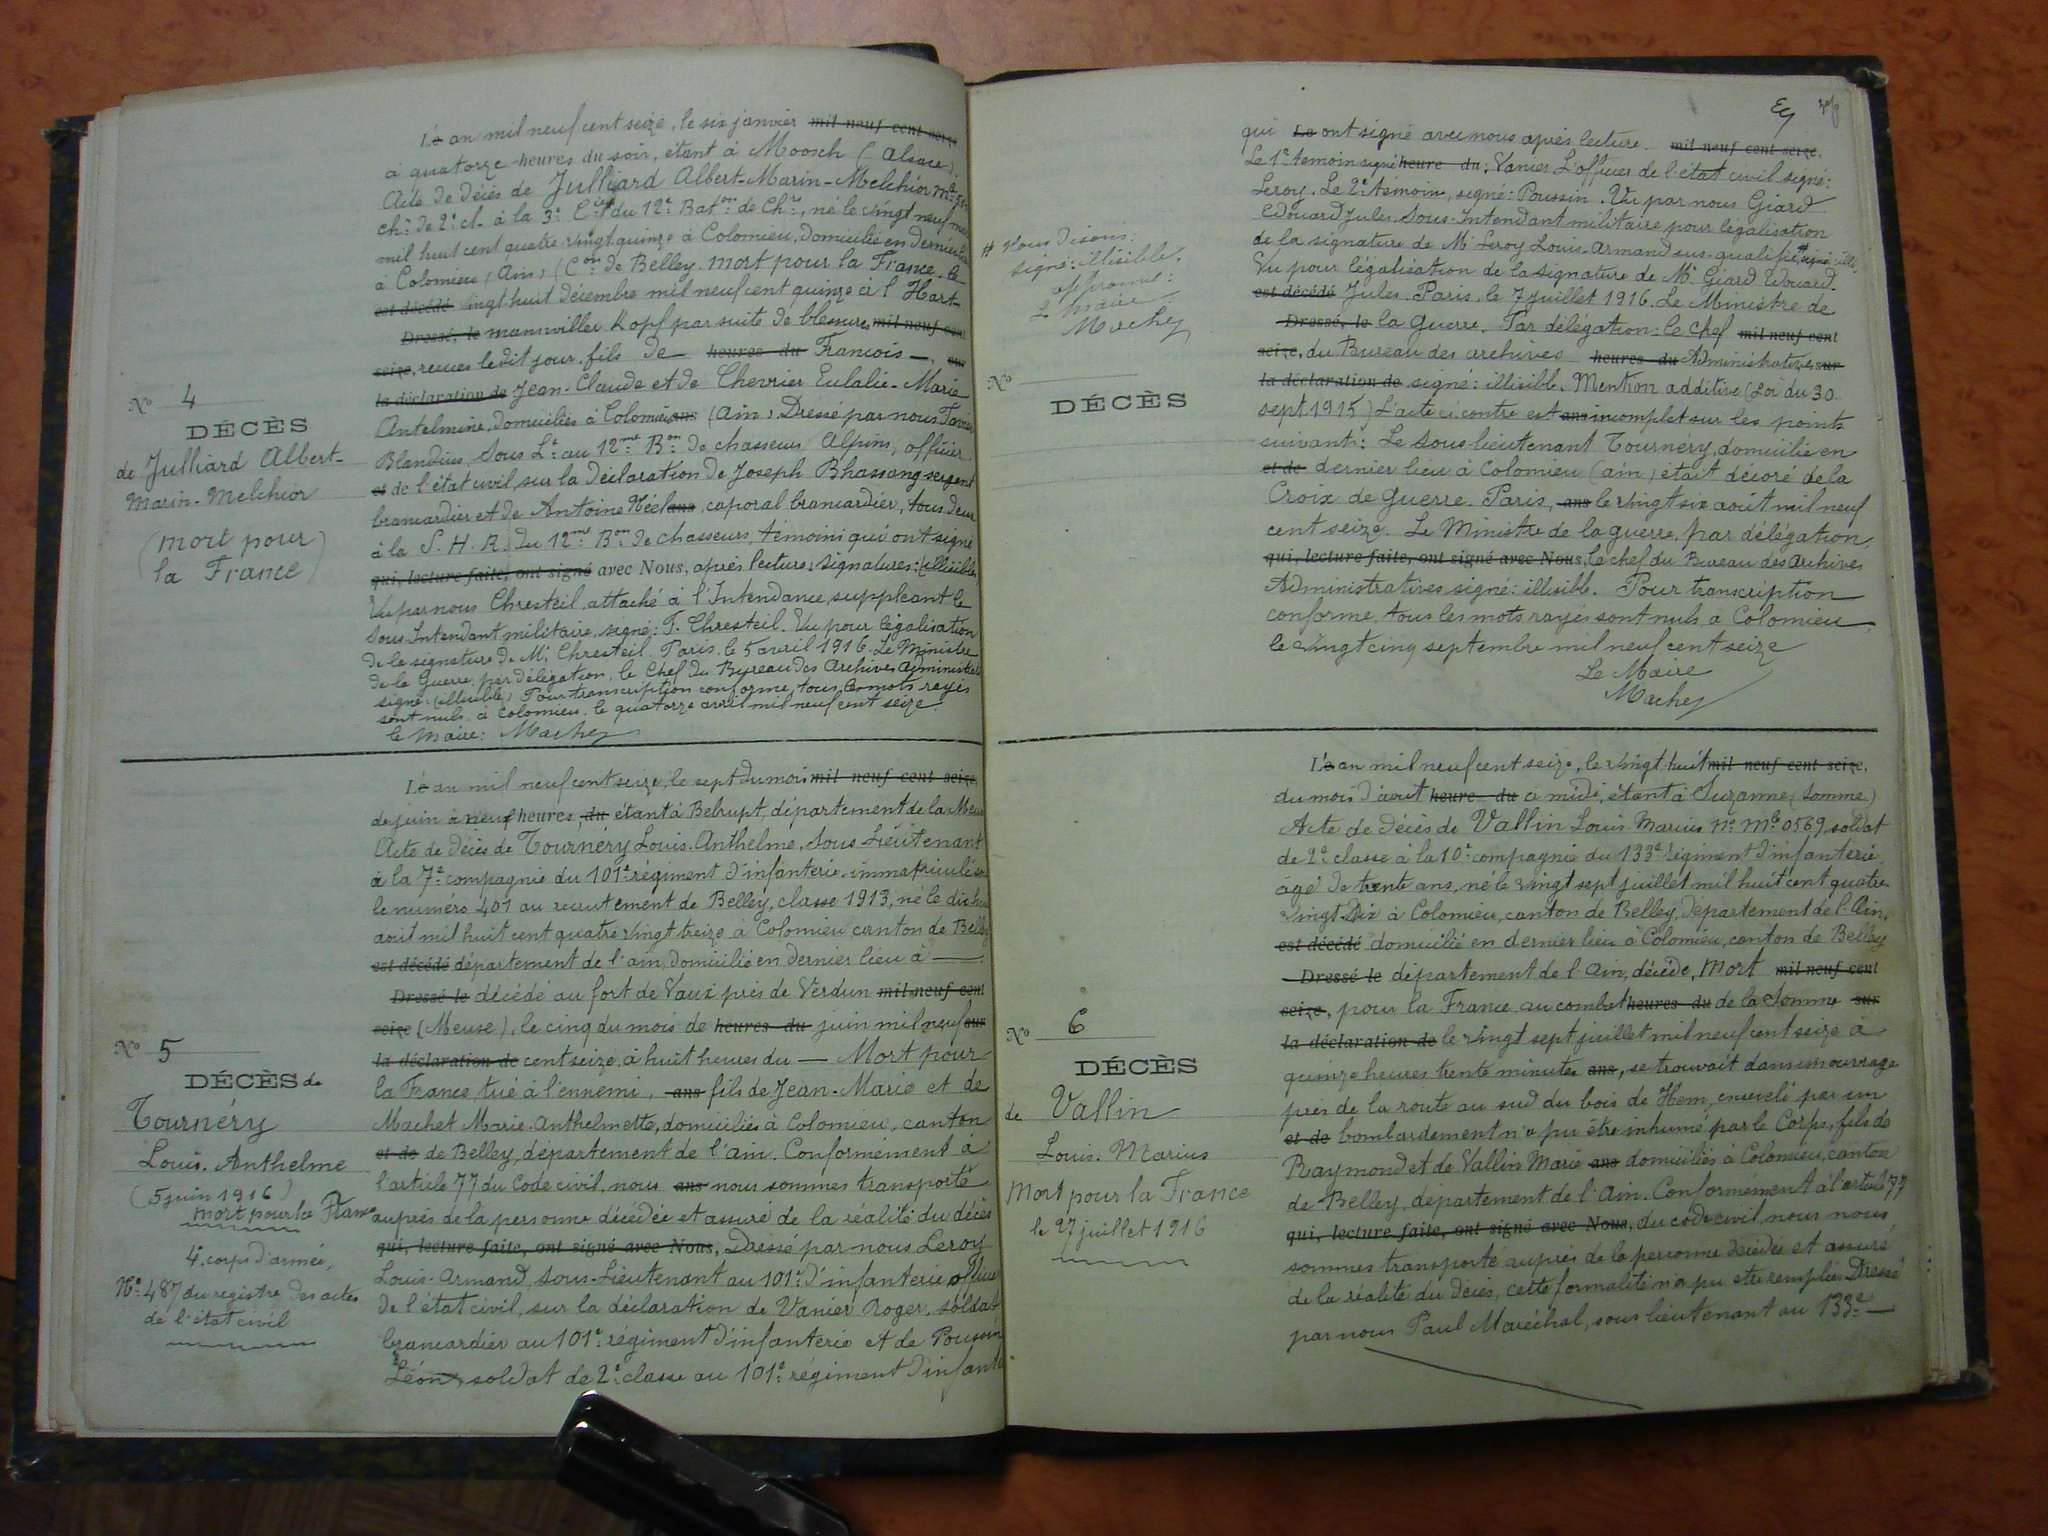 L'an mil neuf cent seize, le six janvier mil neuf cent seize
à quatorze heures du soir, étant à Moosch (Alsace).
Acte de décès de Julliard Albert-Marin-Melchior
chr de 2e cl. à la 3e Cie du 12e Baton de Chrs, né le vingt neuf
mil huit cent quatre-vingt quinze à Colomieu, domicilié en dernier
à Colomieu (Ain) (Con de Belley. Mort pour la France. le
est décédé vingt-huit décembre mil neuf cent quinze à l'Hart-
Dressé, le manswiller Kopf par suite de blessures mil neuf cent
seize, reçues le dit jour, fils de heures du François sur
la déclaration de Jean-Claude et de Chevrier Eulalie-Marie
Antelmine, domiciliés à Colomieu ans (Ain). Dressé par nous
Blandius, Sous Lt au 12me Bon de chasseurs Alpins, officier
et de l'état civil, sur la déclaration de Joseph Bhassang sergent
brancardier et de Antoine ans, caporal brancardier, tous deux
à la S.H.R. du 12me Bon de chasseurs, témoins qui ont signé
qui, lecture faite, ont signé avec Nous, après lecture. Signatures: (illisibles
Vu par nous Chresteil, attaché à l'Intendance, suppléant le
Sous-Intendant militaire, signé: P. Chresteil. Vu pour légalisation
de la signature de Mr Chresteil. Paris, le 5 avril 1916. Le Ministre
de la Guerre, par délégation, le Chef du Bureau des Archives Administratives
signé: (illisible) Pour transcription conforme, tous les mots rayés
sont nuls. à Colomieu, le quatorze avril mil neuf cent seize.
le Maire: Machet
No 4
DÉCÈS
de Julliard Albert-
Marin-Melchior
(Mort pour
la France)
L'an mil neuf cent seize, le sept du mois mil neuf cent seize,
de juin à neuf heures, du étant à Belrupt, département de la Meuse
Acte de décès de Tournéry Louis-Anthelme, Sous-Lieutenant
à la 7e compagnie du 101e régiment d'infanterie, immatriculé
le numéro 401 au recrutement de Belley, classe 1913, né le dix huit
août mil huit cent quatre vingt treize à Colomieu canton de Belley
est décédé département de l'ain, domicilié en dernier lieu à
Dressé le décédé au fort de Vaux près de Verdun mil neuf cent
seize (Meuse), le cinq du mois de heures du juin mil neuf sur
la déclaration de cent seize, à huit heures du — Mort pour
la France, tué à l'ennemi, ans fils de Jean-Marie et de
Machet Marie-Anthelmette, domiciliés à Colomieu, canton
et de de Belley, département de l'ain. Conformément à
l'article 77 du Code civil, nous ans nous sommes transporté
auprès de la personne décédée et assuré de la réalité du décès
qui, lecture faite, ont signé avec Nous, Dressé par nous Leroy
Louis-Armand, Sous-Lieutenant au 101e d'infanterie, officier
de l'état civil, sur la déclaration de Vanier Roger, soldat
brancardier au 101e régiment d'infanterie et de Poussin
Léon, soldat de 2e classe au 101e régiment d'infanterie
No 5
DÉCÈS de
Tournéry
Louis-Anthelme
(5 juin 1916)
mort pour la France
4e corps d'armée,
No 487 du registre des actes
de l'état civil
qui Le ont signé avec nous après lecture. mil neuf cent seize,
Le 1er témoin signé heure du: Vanier. L'officier de l'état civil signé:
Leroy. Le 2e témoin, signé: Poussin. Vu par nous Giard
Edouard Jules, Sous-Intendant militaire pour légalisation
de la signature de Mr Leroy Louis-Armand sus-qualifié #, signé: ille.
Vu pour légalisation de la signature de Mr Giard Edouard.
est décédé Jules. Paris, le 7 juillet 1916. Le Ministre de
Dressé, le la Guerre. Par délégation: le Chef mil neuf cent
seize, du Bureau des archives heures du Administratives sur
la déclaration de signé: illisible. Mention additive (Loi du 30
sept. 1915) L'acte ci contre est ans incomplet sur les points
suivants: Le sous lieutenant Tournéry, domicilié en
et de dernier lieu à Colomieu (ain) était décoré de la
Croix de Guerre. Paris, ans le vingt six août mil neuf
cent seize. Le Ministre de la guerre, par délégation
qui, lecture faite, ont signé avec Nous, le chef du Bureau des Archives
Administratives signé: illisible. Pour transcription
conforme, tous les mots rayés sont nuls, à Colomieu
le vingt cinq septembre mil neuf cent seize
Le Maire
Machet
# Nous disons:
signé: illisible.
approuvé:
Le Maire
Machet
No
DÉCÈS
L'an mil neuf cent seize, le vingt huit mil neuf cent seize,
du mois d'août heure du ci midi, étant à Suzanne (Somme)
Acte de décès de Vallin Louis Marius No Mle 0569, soldat
de 2e classe à la 10e compagnie du 133e régiment d'infanterie,
âgé de trente ans, né le vingt sept juillet mil huit cent quatre-
vingt Dix à Colomieu, canton de Belley, département de l'Ain,
est décédé domicilié en dernier lieu à Colomieu, canton de Belley
Dressé le département de l'Ain, décédé, Mort mil neuf cent
seize, pour la France au combat heures du de la Somme sur
la déclaration de le vingt sept juillet mil neuf cent seize à
quinze heures trente minutes ans, se trouvait dans un ouvrage
près de la route au sud du bois de Hem, enseveli par un
et de bombardement n'a pu être inhumé par le Corps, fils de
Raymond et de Vallin Marie ans domiciliés à Colomieu, canton
de Belley, département de l'Ain. Conformément à l'article 77
qui, lecture faite, ont signé avec Nous, du code civil, nous nous
sommes transporté auprès de la personne décédée et assuré
de la réalité du décès, cette formalité n'a pu être remplie. Dressé
par nous Paul Maréchal, sous lieutenant au 133e
No 6
DÉCÈS
de Vallin
Louis-Marius
Mort pour la France
le 27 juillet 1916